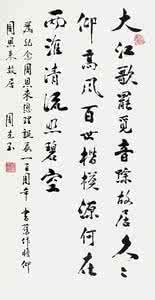 大江歌罢觅音踪故居久久
仰高风百世楷模源何在
两淮清流照碧空
为纪念周恩来总理诞辰一百周年书旧作瞻仰
周恩来故居 周克玉